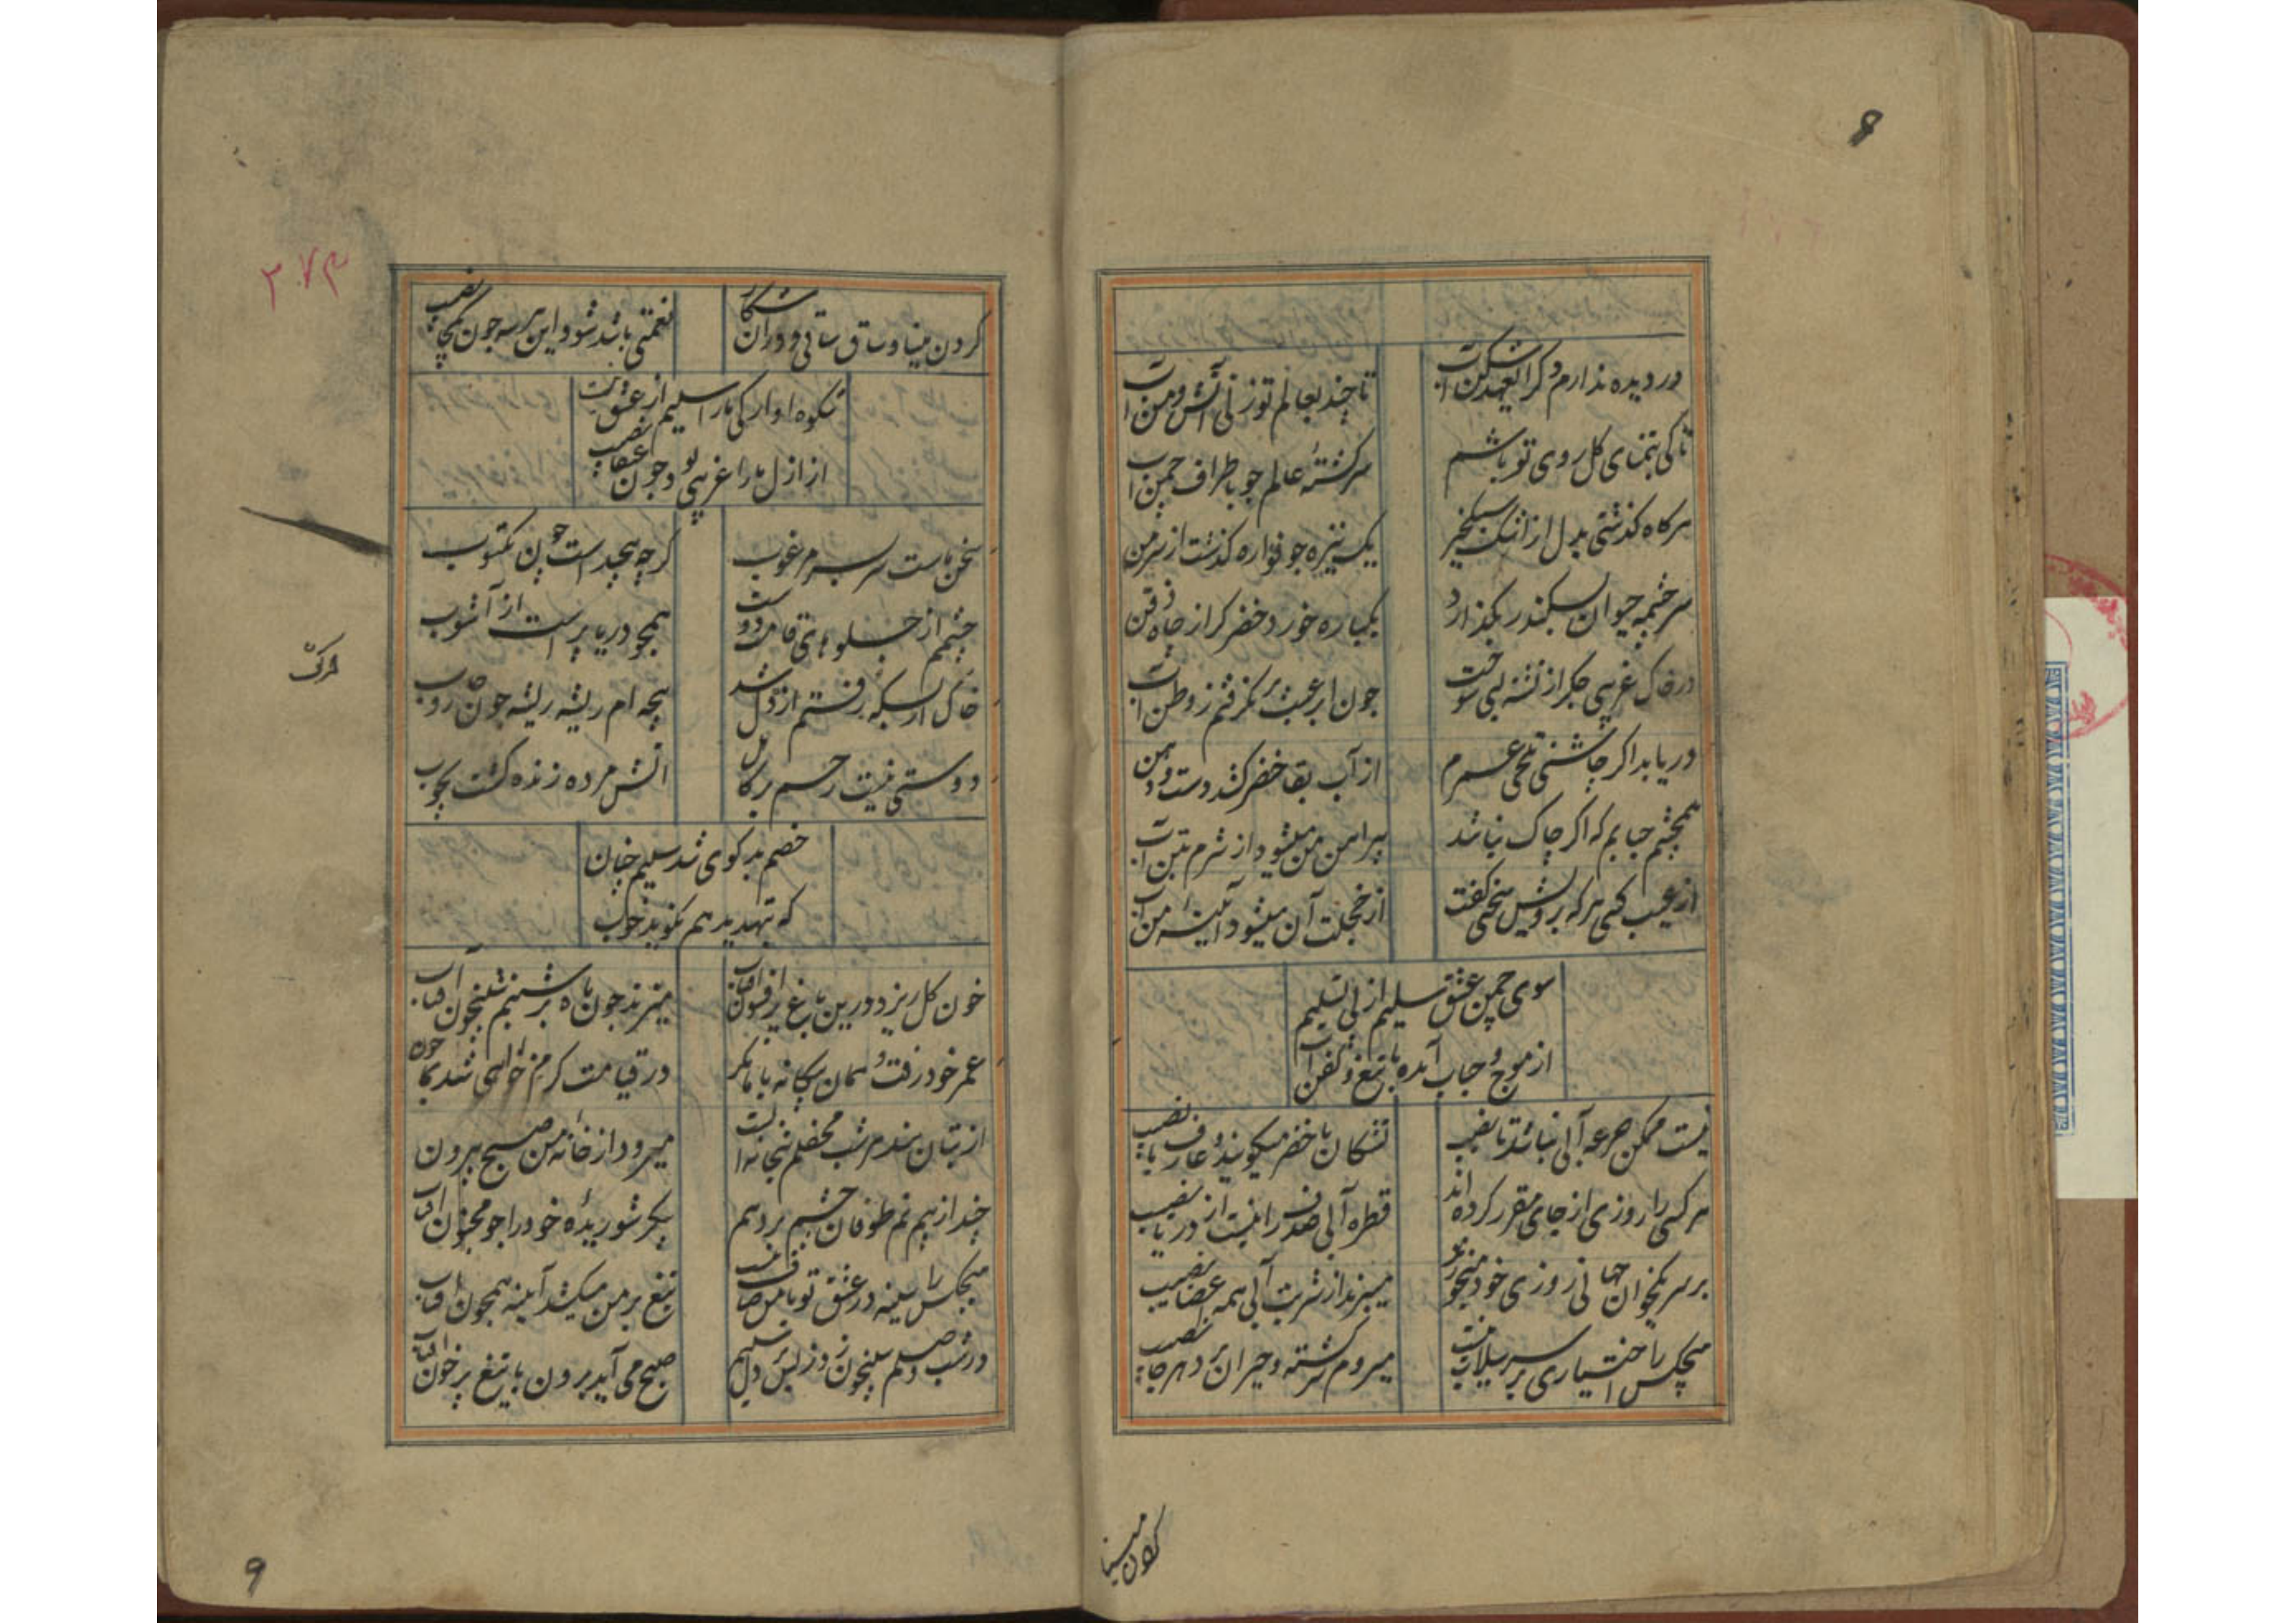 در دیده ندارم دگر العهد شکن آب
تا چند بعالم تو زنی آتش و من آب
تا کی بتمنای کل روی تو باشم
سرکشتهٔ عالم چو باطراف چمن آب
هر کاه کذشتی بدل از اشک سبکخیز
یک نیزه چو فواره کذشت از سر من
سرچشمه حیوان بسکندر بکذارد
یکباره خورد خضر کر از چاه ذقن
در خاک غریبی جکر از تشنه لبی سوخت
چون ابر عبث بر نکرفتم ز وطن آب
دریابد اکر چاشنی تلخی عمرم
از آب بقا خضر کشد دست و دهن
همچشم حبابم که اکر چاک نباشد
پیراهن من میشود از شرم تن آب
از عیب کسی هر که برویش سخنی کفت
از خجلت آن میشود آئینهٔ من آب
سوی چمن عشق سلیم از پی تسلیم
از موج و حباب آمده با تیغ و کفن آب
نیست ممکن جرعه آبی نباشد تا نصیب
تشنکان با خضر میکویند و عارف یا نصیب
هر کسی را روزی از جای مقرر کرده اند
قطره آبی صدف را نیست از دریا نصیب
بر سر یکخوان جهانی روزی خود میخورند
میبرند از شربت آبی همه اعضا نصیب
هیچکس را اختیاری بر سر سیلاب نیست
میروم سرکشته و حیران برد هر جا نصیب
کردن مینا
۲۷۳
کردن مینا و ساق ساقی و دوران شکار
نعمتی باشد شود این هر سه چون یکجا نصیب
شکوه اوارکی ما را سلیم از عشق نیست
از ازل ما را غریبی بود چون عنقا نصیب
سخن ماست سر بسر مرغوب
کر چه پیچیده است چون مکتوب
چشمم از جلوهای قامت دوست
همچو دریا پر است از آشوب
خاک از بسکه رفتم از در دل شد
پنجه ام ریشه ریشه چون جاروب
دوستی نیست رحم بر کامل
اتش مرده زنده کشت بچوب
خصم بدکوی شد سلیم چنان
که بتهدید هم نکوید خوب
خون کل ریزد درین باغ پر افسون آفتاب
میزند چون ماه بر شبنم شبیخون آفتاب
عمر خود رفت و همان بیکانه با ما مکر
در قیامت کرم خواهی شد بما چون
از بتان بندم شب محفلم بتخانه است
میرود از خانهٔ من صبح بیرون
چند از بیم نم طوفان چشم بر دهم
پیکر شوریدهٔ خود را چو مجنون آفتاب
هیچکس را سینه در عشق تو با من صاف نیست
تیغ بر من میکشد آیینه همچون آفتاب
در شب وصلم شبیخون زد ز بس بر دل سلیم
صبح می آید برون با تیغ پر خون آفتاب
9